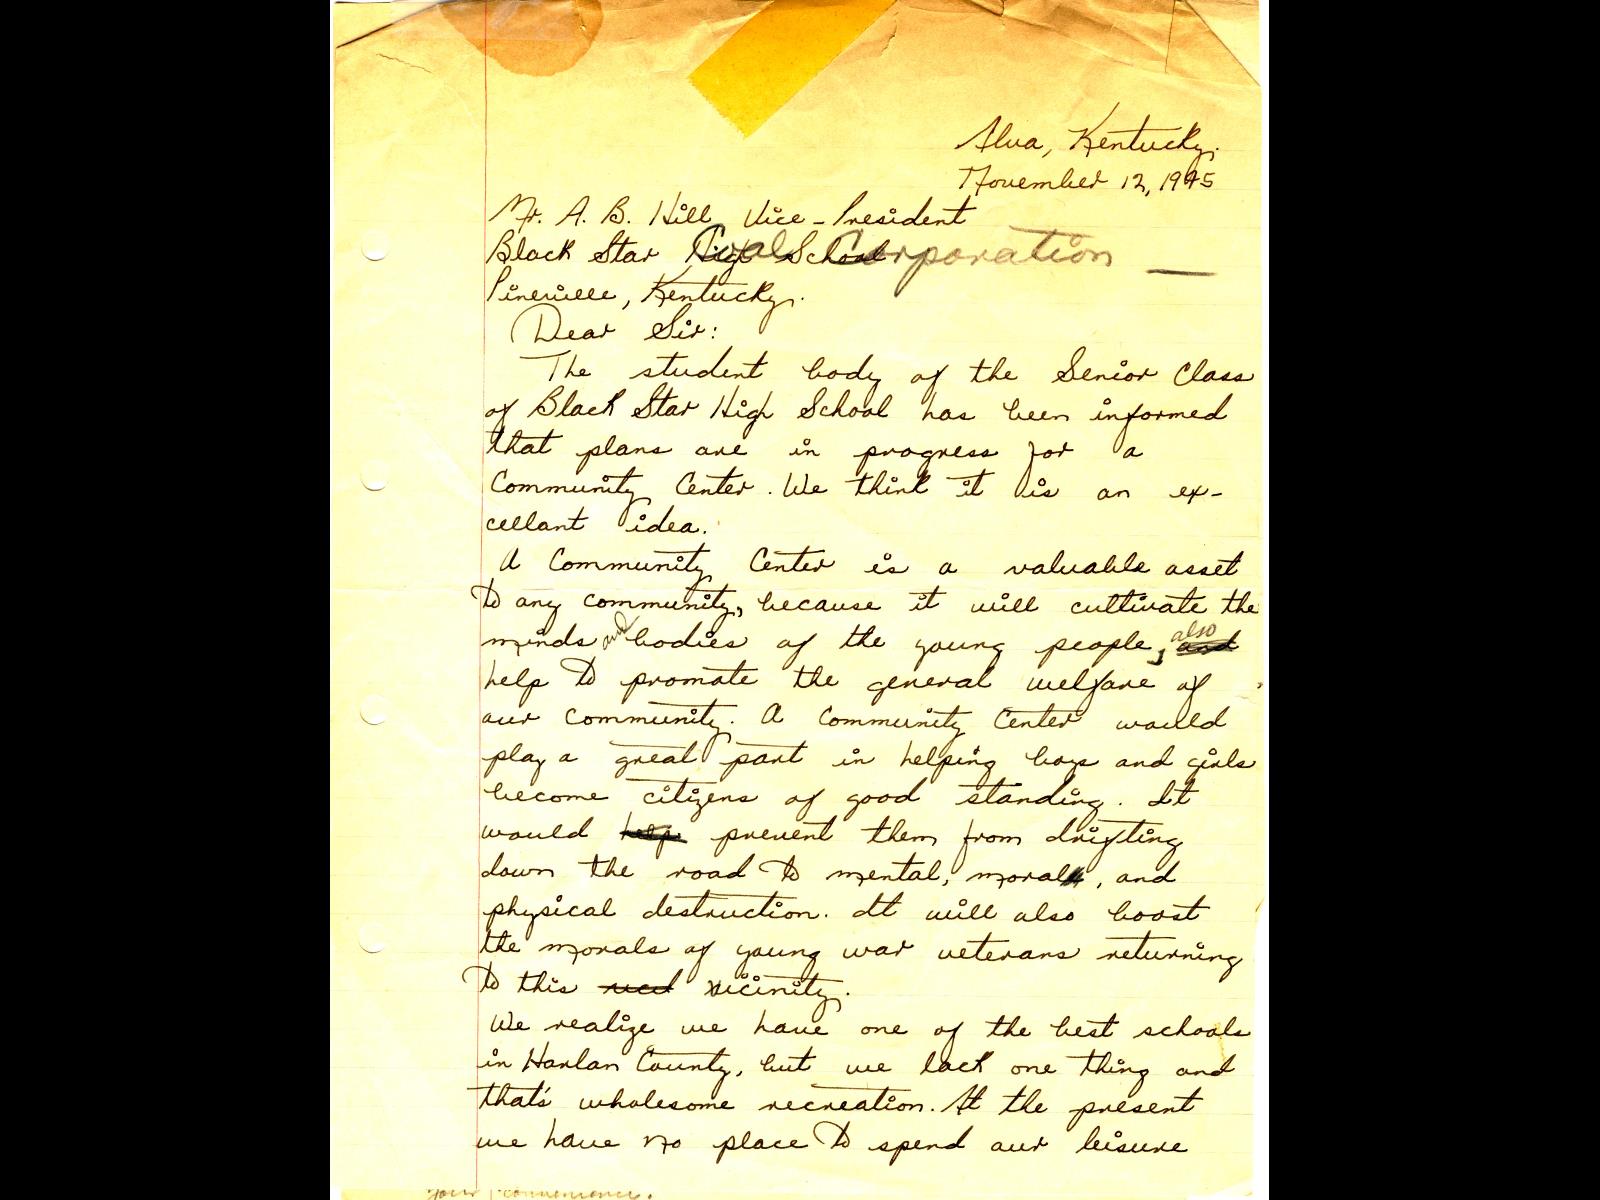 Alva, Kentucky.
November 12, 1945
Mr. A. B. Hill, Vice-President
Black Star High School Coal Corporation
Pineville, Kentucky.
Dear Sir:
The student body of the Senior Class
of Black Star High School has been informed
that plans are in progress for a
Community Center. We think it is an ex-
cellant idea.
A Community Center is a valuable asset
to any community, because it will cultivate the
minds and bodies of the young people, and also
help to promote the general welfare of
our community. A Community Center would
play a great part in helping boys and girls
become citizens of good standing. It
would help prevent them from drifting
down the road to mental, moral, and
physical destruction. It will also boost
the morals of young war veterans returning
to this vicinity.
We realize we have one of the best schools
in Harlan County, but we lack one thing and
that's wholesome recreation. At the present
we have no place to spend our leisure
your convenience.